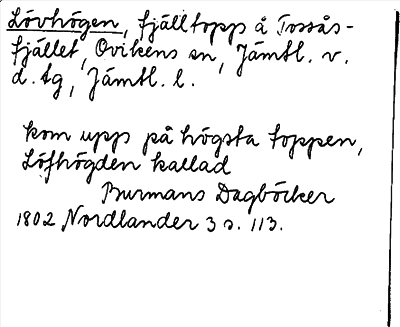 Lövhögen, fjälltopp å Tossås-
fjället, Ovikens sn, Jämtl. v.
d. tg, Jämtl. l.
kom upp på högsta toppen,
Löfhögden kallad
Burmans Dagböcker
1802 Nordlander 3 s. 113.